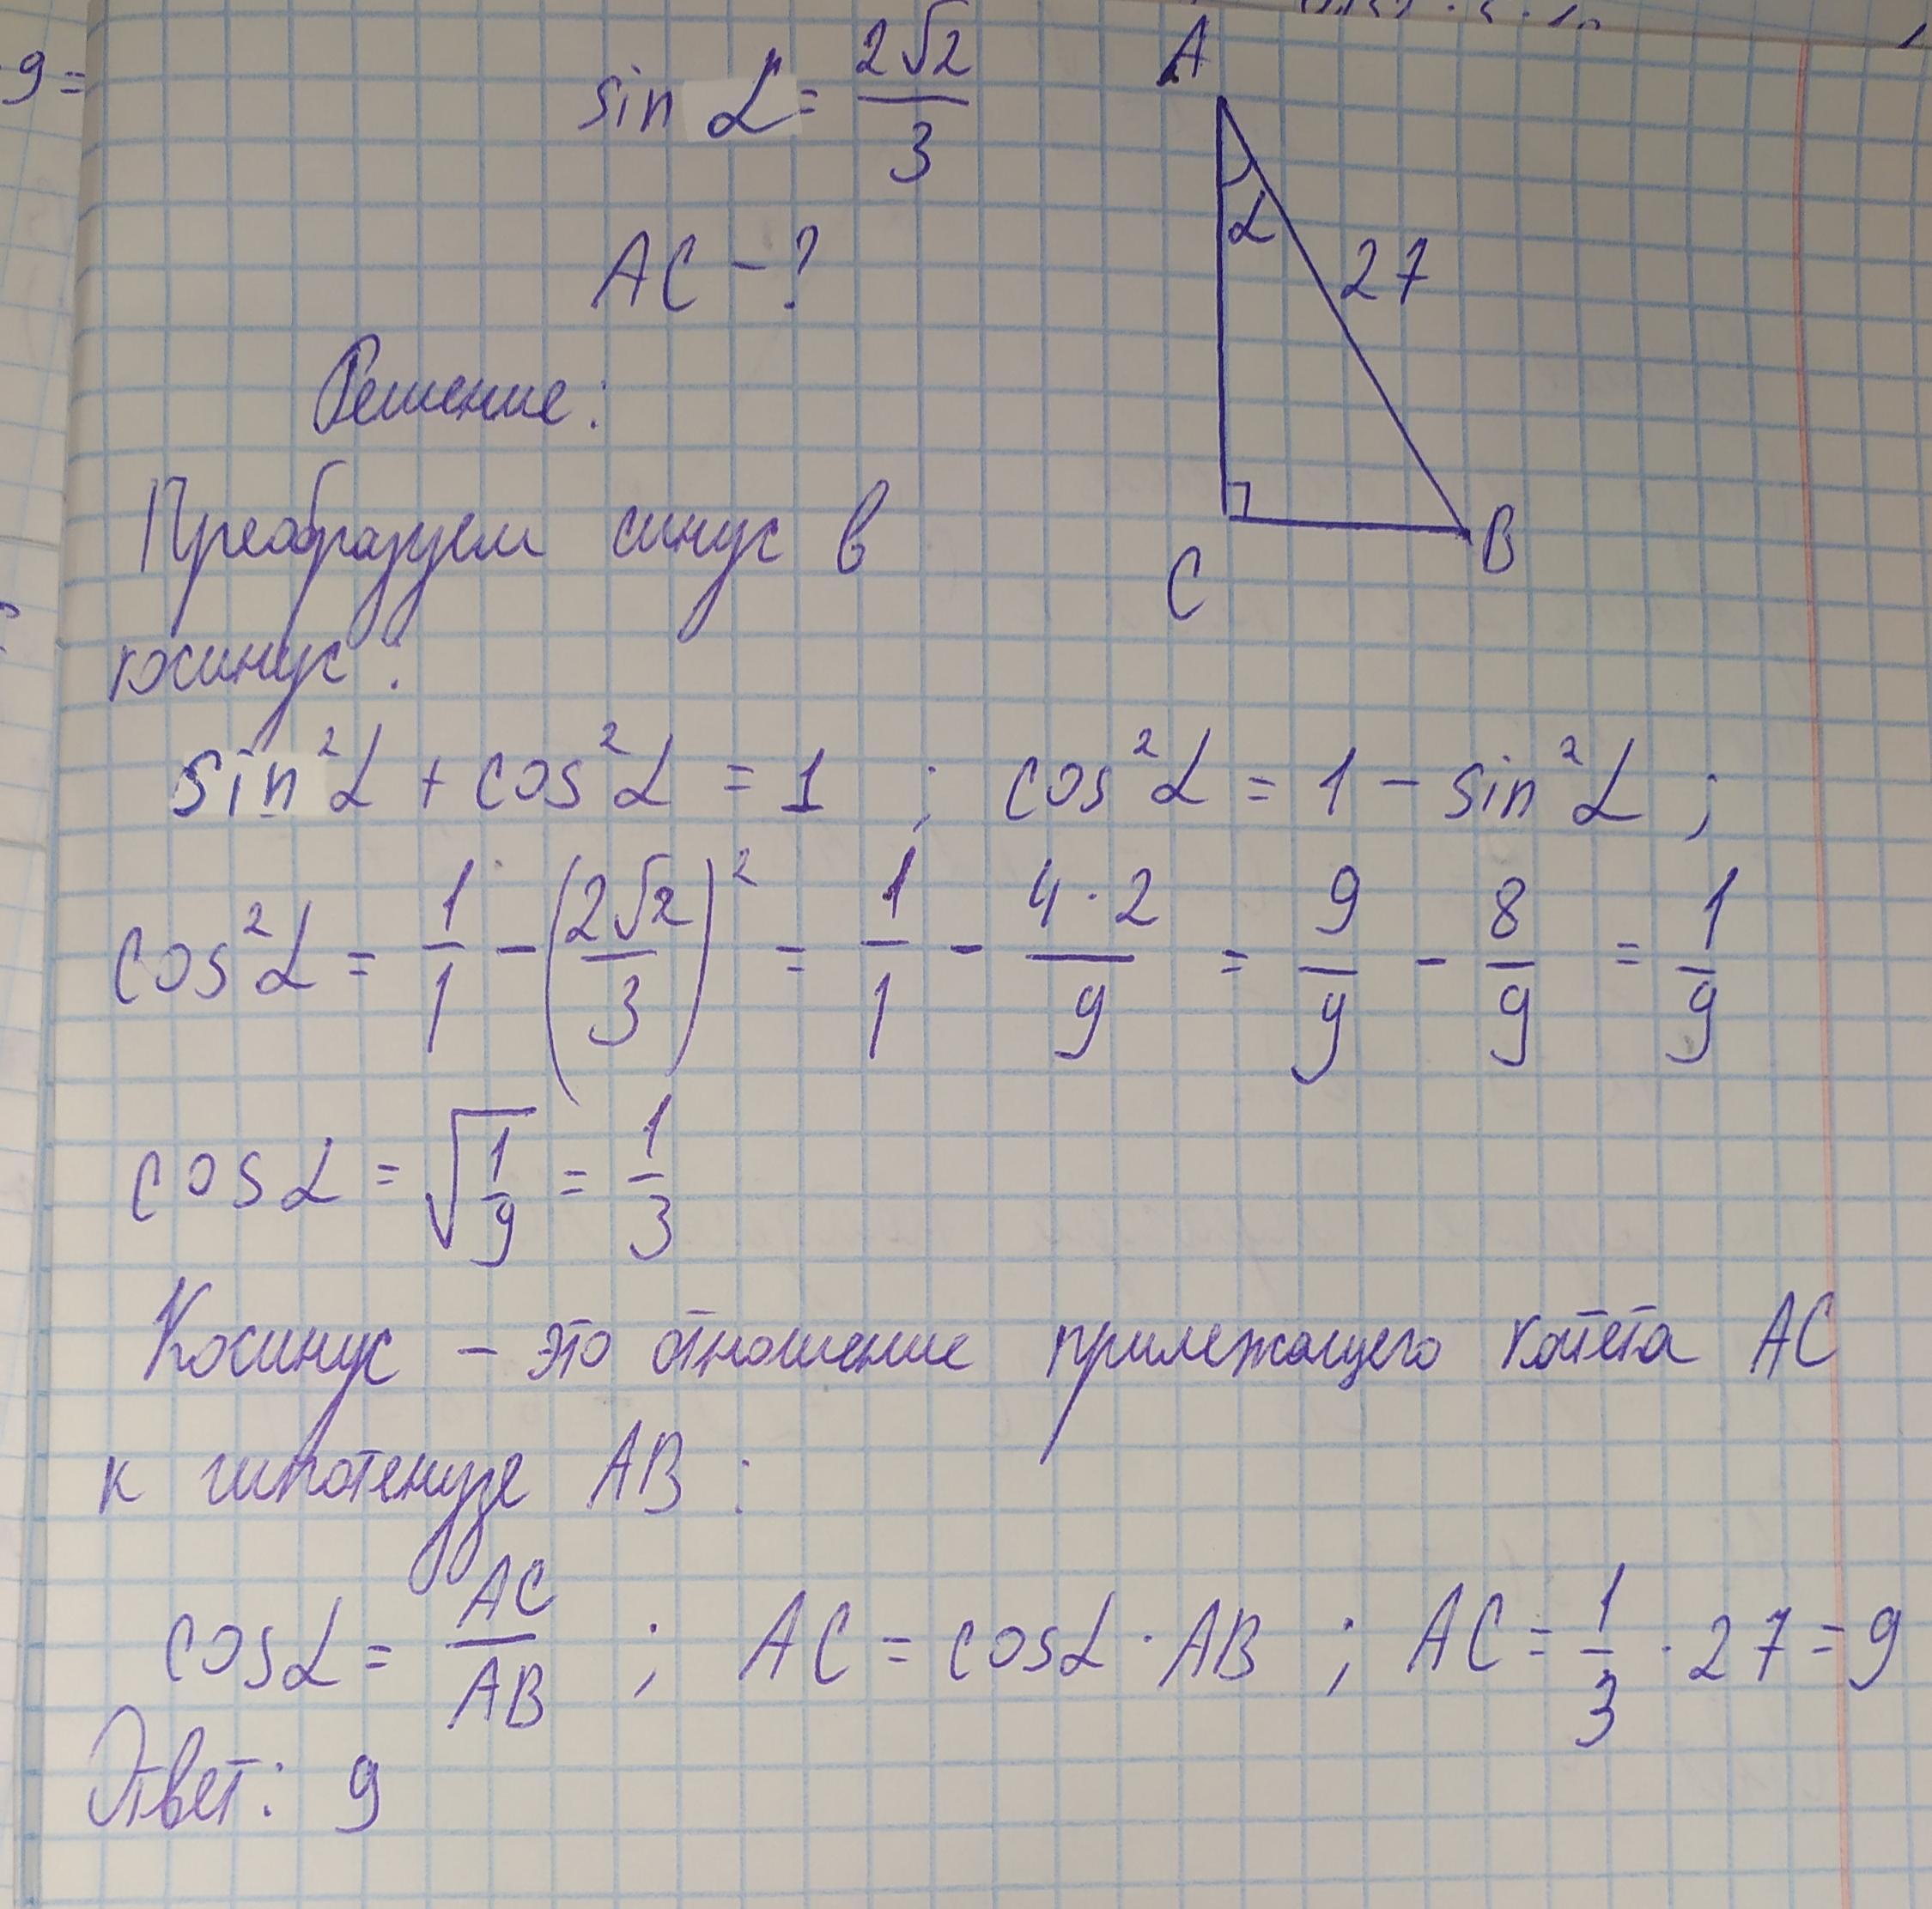 9=
sin α = 2√2/3
A
α
27
AC - ?
C
B
Решение:
Преобразуем синус в
косинус:
sin²α + cos²α = 1 ; cos²α = 1 - sin²α ;
cos²α = 1/1 - (2√2/3)² = 1/1 - 4·2/9 = 9/9 - 8/9 = 1/9
cos α = √(1/9) = 1/3
Косинус - это отношение прилежащего катета AC
к гипотенузе AB :
cos α = AC/AB ; AC = cos α · AB ; AC = 1/3 · 27 = 9
Ответ: 9